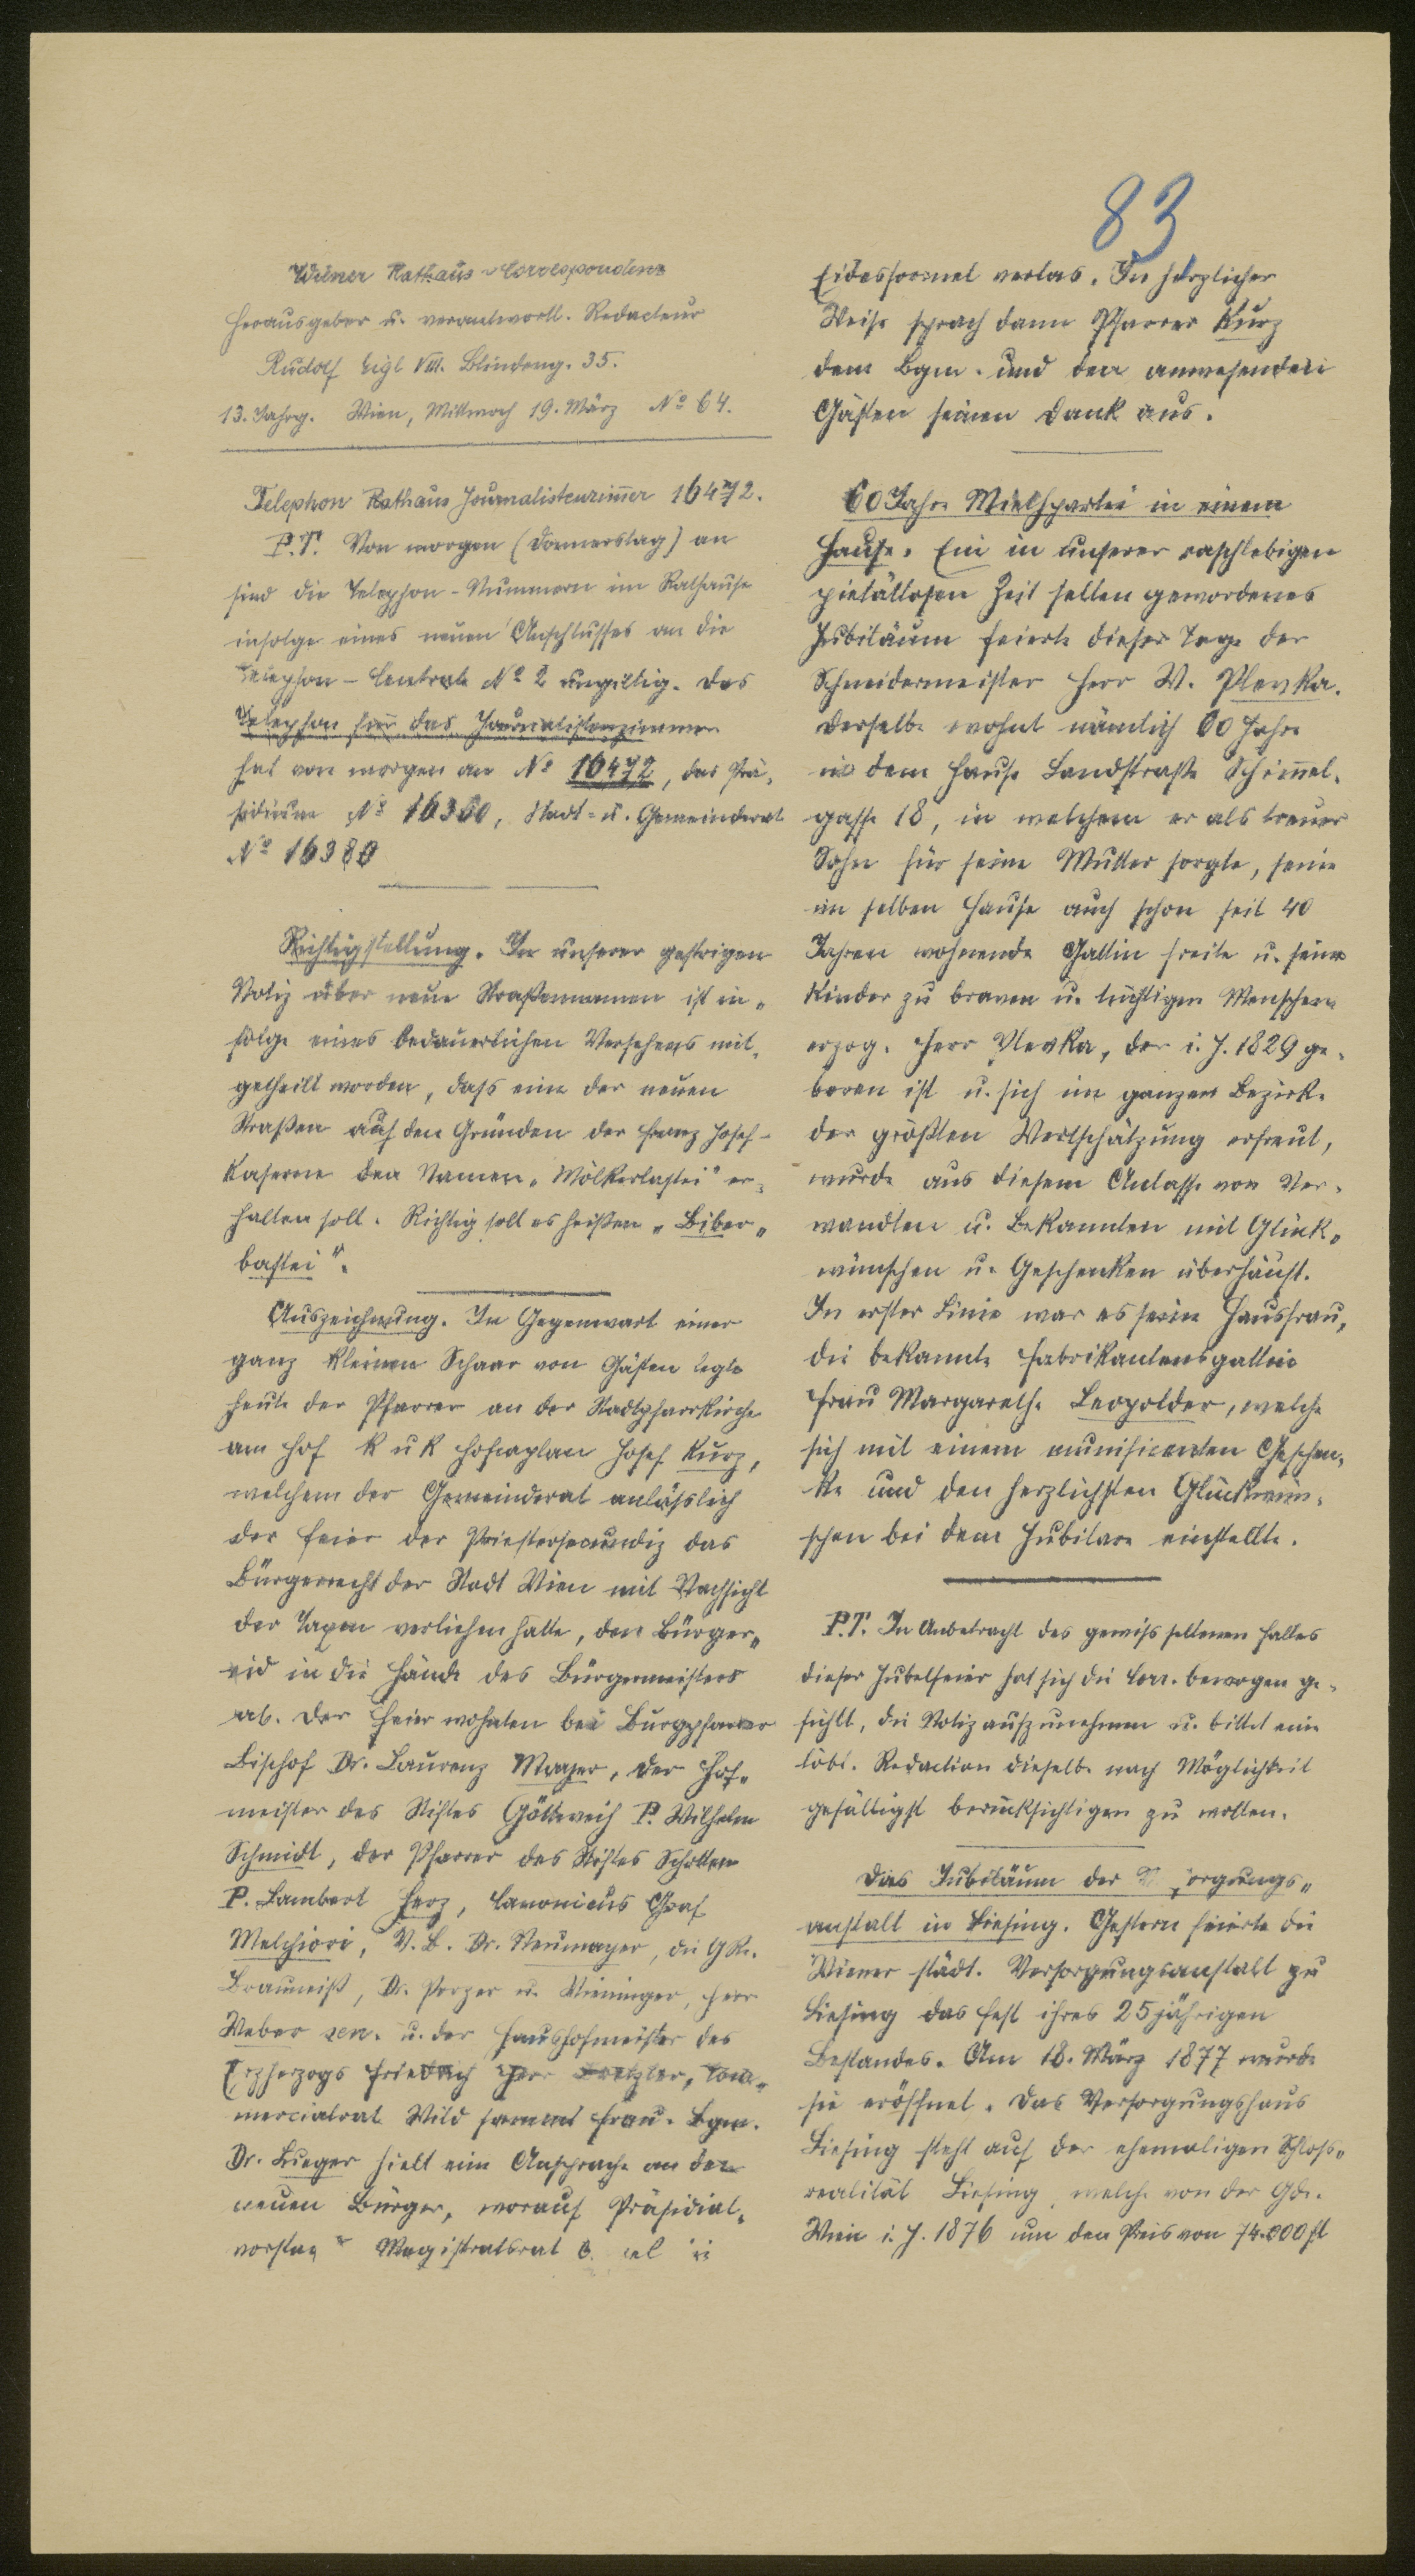 83
Wiener Rathaus-Correspondenz
Herausgeber u. verantwortl. Redacteur
Rudolf Eigl VIII. Blindeng. 35.
13. Jahrg. Wien, Mittwoch 19. März No 64.
Telephon Rathaus Journalistenzimmer 16472.
P.T. Von morgen (Donnerstag) an
sind die Telephon-Nummern im Rathause
infolge eines neuen Anschlusses an die
Telephon-Centrale No 2 ungiltig. Das
Telephon für das Journalistenzimmer
hat von morgen an No 16472, das Prä-
sidium No 16360, Stadt- u. Gemeinderat
No 16380
Richtigstellung. In unserer gestrigen
Notiz über neue Straßennamen ist in-
folge eines bedauerlichen Versehens mit-
getheilt worden, dass eine der neuen
Straßen auf den Gründen der Franz Josef-
Kaserne den Namen „Mölkerbastei" er-
halten soll. Richtig soll es heißen „Biber-
bastei".
Auszeichnung. In Gegenwart einer
ganz kleinen Schaar von Gästen legte
heute der Pfarrer an der Stadtpfarrkirche
am Hof k u k Hofcaplan Josef Kurz,
welchem der Gemeinderat anlässlich
der Feier der Priestersecundiz das
Bürgerrecht der Stadt Wien mit Nachsicht
der Taxen verliehen hatte, den Bürger-
eid in die Hände des Bürgermeisters
ab. Der Feier wohnten bei Burgpfarrer
Bischof Dr. Laurenz Mayer, der Hof-
meister des Stiftes Göttweih P. Wilhelm
Schmidt, der Pfarrer des Stiftes Schotten
P. Lambert Herz, Canonicus Graf
Melchiori, V.B. Dr. Neumayer, die GRe.
Brauneiß, Dr. Porzer u. Vieninger, Herr
Weber sen. u. der Haushofmeister des
Erzherzogs Friedrich Herr Com-
mercialrat Wild sammt Frau. Bgm.
Dr. Lueger hielt eine Ansprache an den
neuen Bürger, worauf Präsidial-
vorstand Magistratsrat die
Eidesformel verlas. In herzlicher
Weise sprach dann Pfarrer Kurz
dem Bgm. und den anwesenden
Gästen seinen Dank aus.
60 Jahre Miethpartei in einem
Hause. Ein in unserer raschlebigen
pietätlosen Zeit selten gewordenes
Jubiläum feierte dieser Tage der
Schneidermeister Herr W. Plevka.
Derselbe wohnt nämlich 60 Jahre
in dem Hause Landstraße Schimmel-
gasse 18, in welchem er als treuer
Sohn für seine Mutter sorgte, seine
im selben Hause auch schon seit 40
Jahren wohnende Gattin freite u. seine
Kinder zu braven u. tüchtigen Menschen
erzog. Herr Plevka, der i. J. 1829 ge-
boren ist u. sich im ganzen Bezirke
der größten Wertschätzung erfreut,
wurde aus diesem Anlasse von Ver-
wandten u. Bekannten mit Glück-
wünschen u. Geschenken überhäuft.
In erster Linie war es seine Hausfrau,
die bekannte Fabrikantensgattin
Frau Margarethe Leopolder, welche
sich mit einem munificenten Geschen-
ke und den herzlichsten Glückwün-
schen bei dem Jubilare einstellte.
P.T. In Anbetracht des gewiss seltenen Falles
dieser Jubelfeier hat sich die Corr. bewogen ge-
fühlt, die Notiz aufzunehmen u. bittet eine
löbl. Redaction dieselbe nach Möglichkeit
gefälligst berücksichtigen zu wollen.
Das Jubiläum der Versorgungs-
anstalt in Liesing. Gestern feierte die
Wiener städt. Versorgungsanstalt zu
Liesing das Fest ihres 25jährigen
Bestandes. Am 18. März 1877 wurde
sie eröffnet. Das Versorgungshaus
Liesing steht auf der ehemaligen Schloss-
realität Liesing, welche von der Gde.
Wien i. J. 1876 um den Preis von 74.000 fl